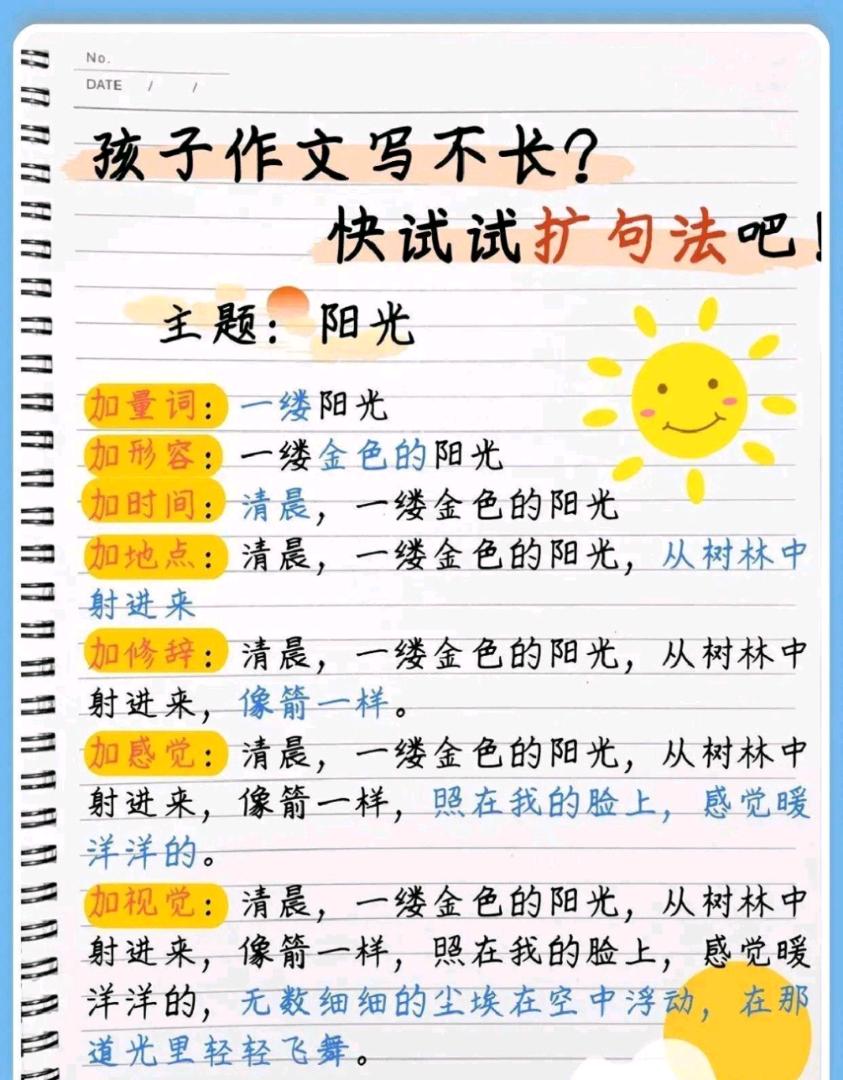 No.
DATE / /
孩子作文写不长？
快试试扩句法吧！
主题：阳光
加量词：一缕阳光
加形容：一缕金色的阳光
加时间：清晨，一缕金色的阳光
加地点：清晨，一缕金色的阳光，从树林中
射进来
加修辞：清晨，一缕金色的阳光，从树林中
射进来，像箭一样。
加感觉：清晨，一缕金色的阳光，从树林中
射进来，像箭一样，照在我的脸上，感觉暖
洋洋的。
加视觉：清晨，一缕金色的阳光，从树林中
射进来，像箭一样，照在我的脸上，感觉暖
洋洋的，无数细细的尘埃在空中浮动，在那
道光里轻轻飞舞。